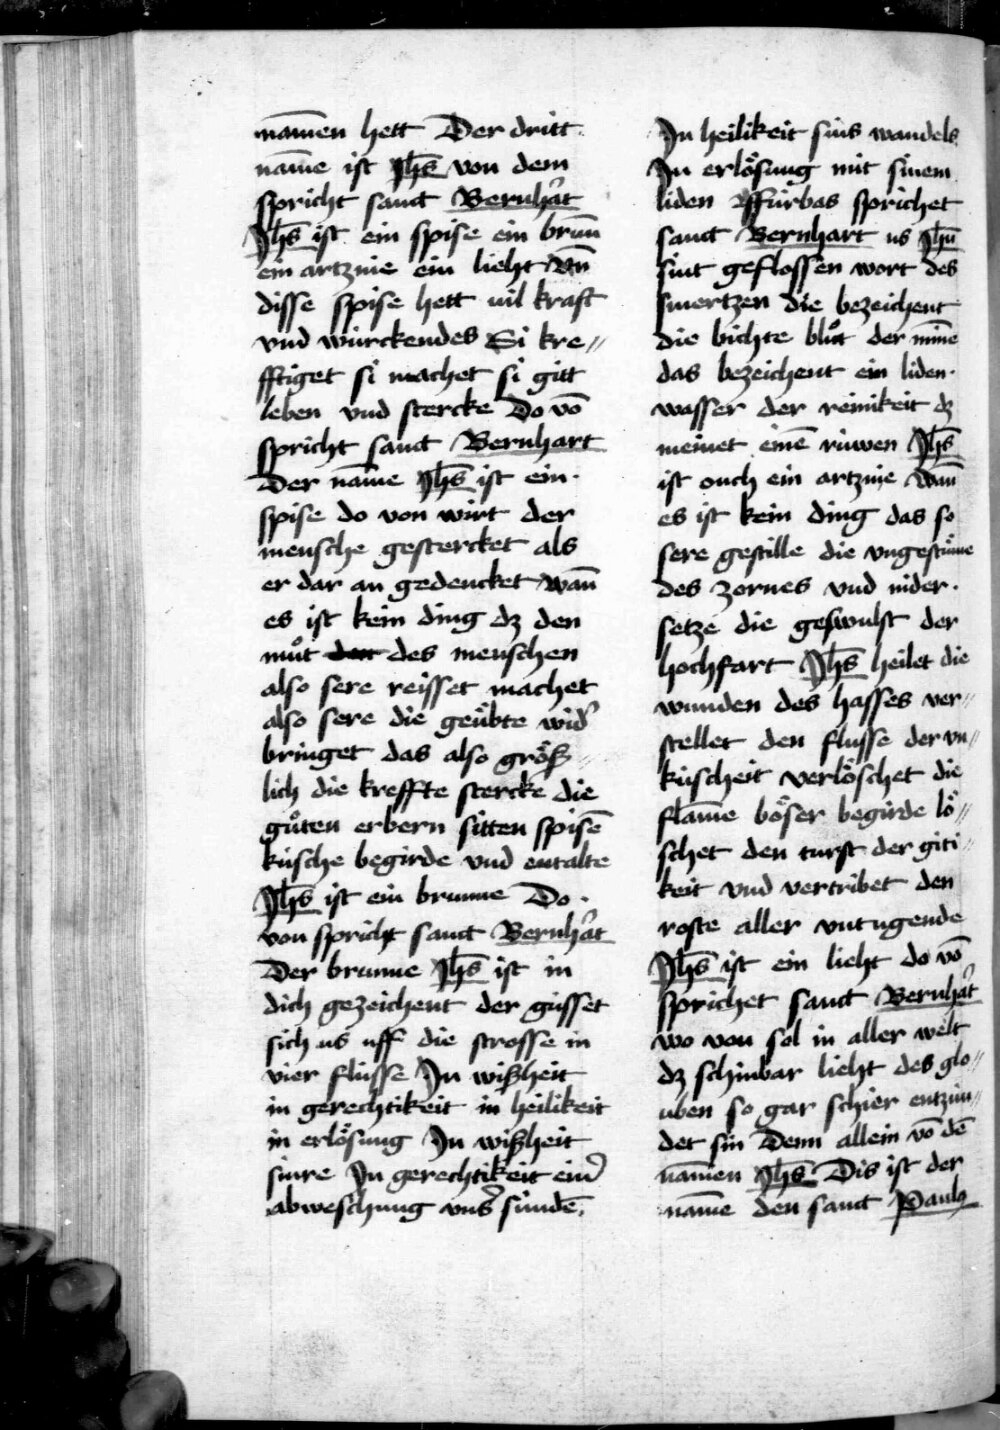 nam̄en hett Der dritt
nam̄e ist Jh̄s von dem
spricht sanct Bernhꝛ̄at
Jh̄s ist ein spise ein brun̄
ein artznie ein lieht Vn̄
disse spise hett uil kraft
vnd würckendes Si kre〃
fftiget si machet si gitt
leben vnd stercke Do vō
spricht sanct Bernhart
Der nam̄e Jh̄s ist ein.
spise do von wirt der
mensche gestercket als
er dar an gedencket wan̄
es ist kein ding dz den
muͦt des menschen
also sere reisset machet
also sere die geuͤbte wid᾽
bringet das also größ〃
lich die kreffte stercke die
guͦten erbern sitten spisē
küsche begirde vnd entalte
Jh̄s ist ein brunne Do.
von spricht sanct Bernhāt
Der brunne Jh̄s ist in
dich gezeichent der güsset
sich us uff die strosse in
vier flüsse Jn wißheit
in gerechtikeit in heilikeit
in erlösung Jn wißheit
sinre Jn gerechtikeit ein᾽
abweschung vns᾽ sündē.
Jn heilikeit sins wandels
Jn erlösung mit sinem
liden Ffürbas sprichet
sanct Bernhart us Jhū
sint geflossen wort des
smertzen die bezeichent
die bichte bluͦt der min̄e
das bezeichent ein liden.
wasser der reinikeit dz
meinet einē rüwen Jh̄s
ist ouch ein artznie wan̄
es ist kein ding das so
sere gestille die vngestüme
des zornes vnd nider.
setze die geswulst der
hochfart Jh̄s heilet die
wunden des hasses ver〃
stellet den flusse der vn〃
küscheit verlöschet die
flam̄e böser begirde lö〃
schet den turst der giti〃
keit vnd vertribet den
roste aller vntugende
Jh̄s ist ein lieht do vō
sprichet sanct Bernhāt
wo von sol in aller welt
dz schinbar lieht des glo〃
uben so gar schier entzün〃
det sin Denn allein vō dē
nam̄en Jh̄s Dis ist der
nam̄e den sanct Paulꝰ